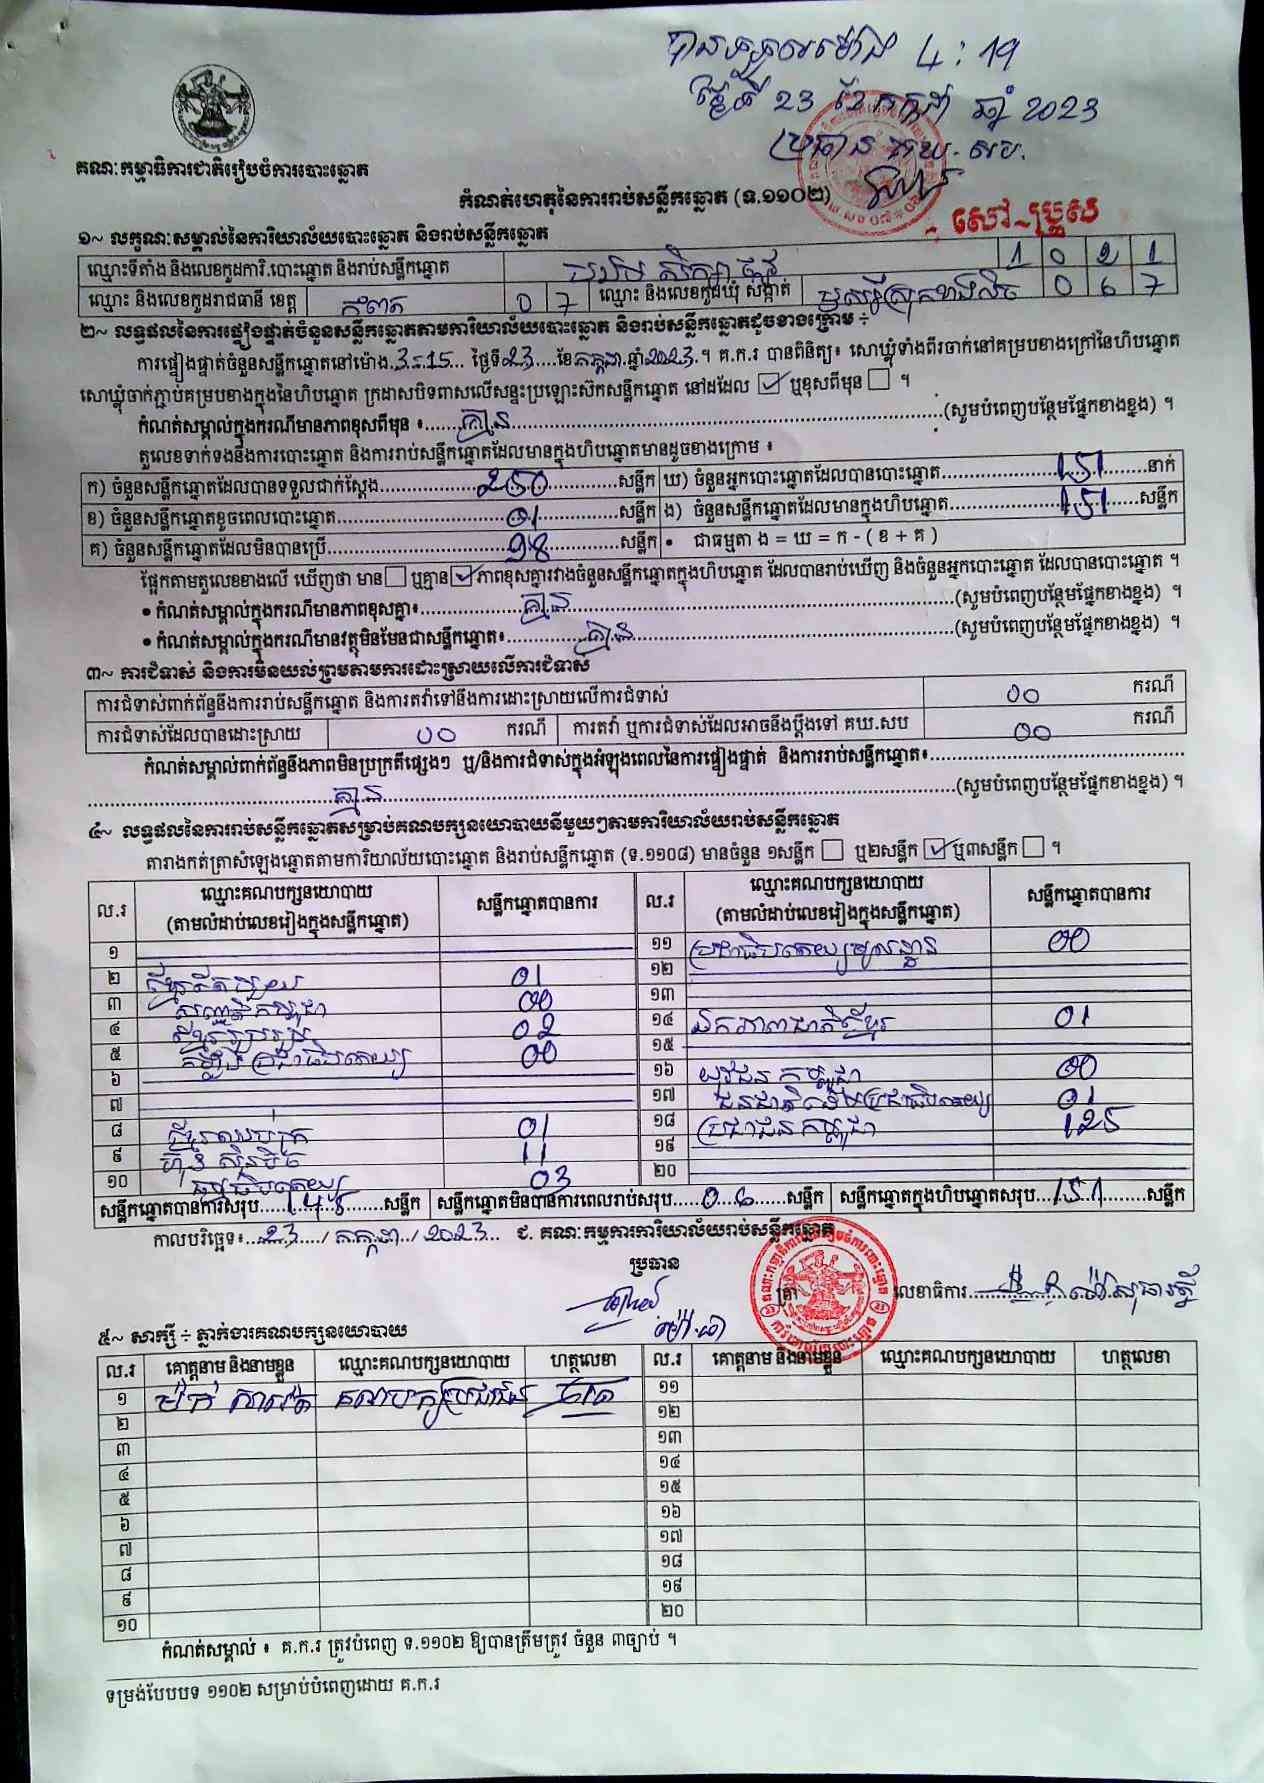 បានទទួលម៉ោង 4:19
ថ្ងៃទី 23 ខែ កក្កដា ឆ្នាំ 2023
ប្រធាន គឃ.សប.
គណៈកម្មាធិការជាតិរៀបចំការបោះឆ្នោត
កំណត់ហេតុនៃការរាប់សន្លឹកឆ្នោត (ទ.១១០២)
សៅ ប្រុស
១~ លក្ខណៈសម្គាល់នៃការិយាល័យបោះឆ្នោត និងរាប់សន្លឹកឆ្នោត
ឈ្មោះទីតាំង និងលេខកូដការិ.បោះឆ្នោត និងរាប់សន្លឹកឆ្នោត 1 0 2 1
ឈ្មោះ និងលេខកូដរាជធានី ខេត្ត កំពត 0 7 ឈ្មោះ និងលេខកូដឃុំ សង្កាត់ 0 6 7
២~ លទ្ធផលនៃការផ្ទៀងផ្ទាត់ចំនួនសន្លឹកឆ្នោតតាមការិយាល័យបោះឆ្នោត និងរាប់សន្លឹកឆ្នោតដូចខាងក្រោម ÷
ការផ្ទៀងផ្ទាត់ចំនួនសន្លឹកឆ្នោតនៅម៉ោង 3:15 ថ្ងៃទី 23 ខែ កក្កដា ឆ្នាំ 2023 ។ គ.ក.រ បានពិនិត្យ៖ សោឃ្លុំទាំងពីរចាក់នៅគម្របខាងក្រៅនៃហិបឆ្នោត
សោឃ្លុំចាក់ភ្ជាប់គម្របខាងក្នុងនៃហិបឆ្នោត ក្រដាសបិទពាសលើសន្ទះប្រឡោះស៊កសន្លឹកឆ្នោត នៅដដែល ☑ ឬខុសពីមុន ☐ ។
កំណត់សម្គាល់ក្នុងករណីមានភាពខុសពីមុន ៖ គ្មាន (សូមបំពេញបន្ថែមផ្នែកខាងខ្នង) ។
តួលេខទាក់ទងនឹងការបោះឆ្នោត និងការរាប់សន្លឹកឆ្នោតដែលមានក្នុងហិបឆ្នោតមានដូចខាងក្រោម ៖
ក) ចំនួនសន្លឹកឆ្នោតដែលបានទទួលជាក់ស្តែង 250 សន្លឹក ឃ) ចំនួនអ្នកបោះឆ្នោតដែលបានបោះឆ្នោត 151 នាក់
ខ) ចំនួនសន្លឹកឆ្នោតខូចពេលបោះឆ្នោត 01 សន្លឹក ង) ចំនួនសន្លឹកឆ្នោតដែលមានក្នុងហិបឆ្នោត 151 សន្លឹក
គ) ចំនួនសន្លឹកឆ្នោតដែលមិនបានប្រើ 98 សន្លឹក • ជាធម្មតា ង = ឃ = ក - ( ខ + គ )
ផ្អែកតាមតួលេខខាងលើ ឃើញថា មាន ☐ ឬគ្មាន ☑ ភាពខុសគ្នារវាងចំនួនសន្លឹកឆ្នោតក្នុងហិបឆ្នោត ដែលបានរាប់ឃើញ និងចំនួនអ្នកបោះឆ្នោត ដែលបានបោះឆ្នោត ។
• កំណត់សម្គាល់ក្នុងករណីមានភាពខុសគ្នា៖ គ្មាន (សូមបំពេញបន្ថែមផ្នែកខាងខ្នង) ។
• កំណត់សម្គាល់ក្នុងករណីមានវត្ថុមិនមែនជាសន្លឹកឆ្នោត៖ គ្មាន (សូមបំពេញបន្ថែមផ្នែកខាងខ្នង) ។
៣~ ការជំទាស់ និងការមិនយល់ព្រមតាមការដោះស្រាយលើការជំទាស់
ការជំទាស់ពាក់ព័ន្ធនឹងការរាប់សន្លឹកឆ្នោត និងការតវ៉ាទៅនឹងការដោះស្រាយលើការជំទាស់ 00 ករណី
ការជំទាស់ដែលបានដោះស្រាយ 00 ករណី ការតវ៉ា ឬការជំទាស់ដែលអាចនឹងប្តឹងទៅ គឃ.សប 00 ករណី
កំណត់សម្គាល់ពាក់ព័ន្ធនឹងភាពមិនប្រក្រតីផ្សេងៗ ឬ/និងការជំទាស់ក្នុងអំឡុងពេលនៃការផ្ទៀងផ្ទាត់ និងការរាប់សន្លឹកឆ្នោត៖
គ្មាន (សូមបំពេញបន្ថែមផ្នែកខាងខ្នង) ។
៤~ លទ្ធផលនៃការរាប់សន្លឹកឆ្នោតសម្រាប់គណបក្សនយោបាយនីមួយៗតាមការិយាល័យរាប់សន្លឹកឆ្នោត
តារាងកត់ត្រាសំឡេងឆ្នោតតាមការិយាល័យបោះឆ្នោត និងរាប់សន្លឹកឆ្នោត (ទ.១១០៨) មានចំនួន ១សន្លឹក ☐ ឬ២សន្លឹក ☑ ឬ៣សន្លឹក ☐ ។
ល.រ ឈ្មោះគណបក្សនយោបាយ (តាមលំដាប់លេខរៀងក្នុងសន្លឹកឆ្នោត) សន្លឹកឆ្នោតបានការ ល.រ ឈ្មោះគណបក្សនយោបាយ (តាមលំដាប់លេខរៀងក្នុងសន្លឹកឆ្នោត) សន្លឹកឆ្នោតបានការ
១ ១១ ប្រជាធិបតេយ្យមូលដ្ឋាន 00
២ ខ្មែរតែមួយ 01 ១២
៣ សញ្ជាតិកម្ពុជា 00 ១៣
៤ ខ្មែររួបរួម 02 ១៤ ឯកភាពជាតិខ្មែរ 01
៥ កម្លាំងប្រជាធិបតេយ្យ 00 ១៥
៦ ១៦ យុវជនកម្ពុជា 00
៧ ១៧ ជនជាតិដើមប្រជាធិបតេយ្យ 01
៨ ខ្មែរឈប់ក្រ 01 ១៨ ប្រជាជនកម្ពុជា 125
៩ ហ៊្វុនស៊ិនប៉ិច 11 ១៩
១០ ធម្មាធិបតេយ្យ 03 ២០
សន្លឹកឆ្នោតបានការសរុប 145 សន្លឹក សន្លឹកឆ្នោតមិនបានការពេលរាប់សរុប 06 សន្លឹក សន្លឹកឆ្នោតក្នុងហិបឆ្នោតសរុប 151 សន្លឹក
កាលបរិច្ឆេទ៖ 23 / កក្កដា / 2023 ជ. គណៈកម្មការការិយាល័យរាប់សន្លឹកឆ្នោត
ប្រធាន
ត្រា
លេខាធិការ
៥~ សាក្សី ÷ ភ្នាក់ងារគណបក្សនយោបាយ
ល.រ គោត្តនាម និងនាមខ្លួន ឈ្មោះគណបក្សនយោបាយ ហត្ថលេខា ល.រ គោត្តនាម និងនាមខ្លួន ឈ្មោះគណបក្សនយោបាយ ហត្ថលេខា
១ គណបក្សប្រជាជន ១១
២ ១២
៣ ១៣
៤ ១៤
៥ ១៥
៦ ១៦
៧ ១៧
៨ ១៨
៩ ១៩
១០ ២០
កំណត់សម្គាល់ ៖ គ.ក.រ ត្រូវបំពេញ ទ.១១០២ ឱ្យបានត្រឹមត្រូវ ចំនួន ៣ច្បាប់ ។
ទម្រង់បែបបទ ១១០២ សម្រាប់បំពេញដោយ គ.ក.រ